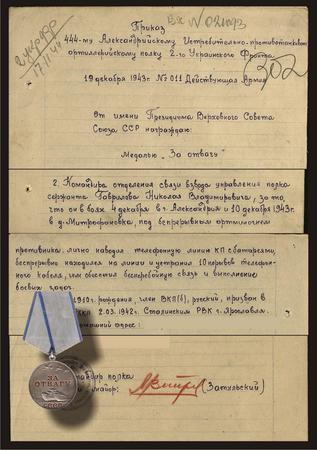 Вх №02193
2 укр фр
17/II 44
302
Приказ
444-му Александрийскому Истребительно-противотанковому
артиллерийскому полку 2-го Украинского Фронта
19 декабря 1943г. №011 Действующая Армия
От имени Президиума Верховного Совета
Союза ССР награждаю:
Медалью "За отвагу"
2. Командира отделения связи взвода управления полка
сержанта Гаврилова Николая Владимировича, за то,
что он в боях 4 декабря в г. Александрия и 10 декабря 1943г.
в д. Митрофановка, под беспрерывным артогнем
противника лично наводил телефонную линию КП с батареями,
беспрерывно находился на линии и устранил 10 порывов телефон-
ного кабеля, чем обеспечил бесперебойную связь и выполнение
боевых задач.
1910г. рождения, член ВКП(б), русский, призван в
ККА 2.03.1942г. Сталинским РВК г. Ярославля.
машний адрес:
мандир полка
майор:
(Затульский)
ЗА
ОТВАГУ
СССР